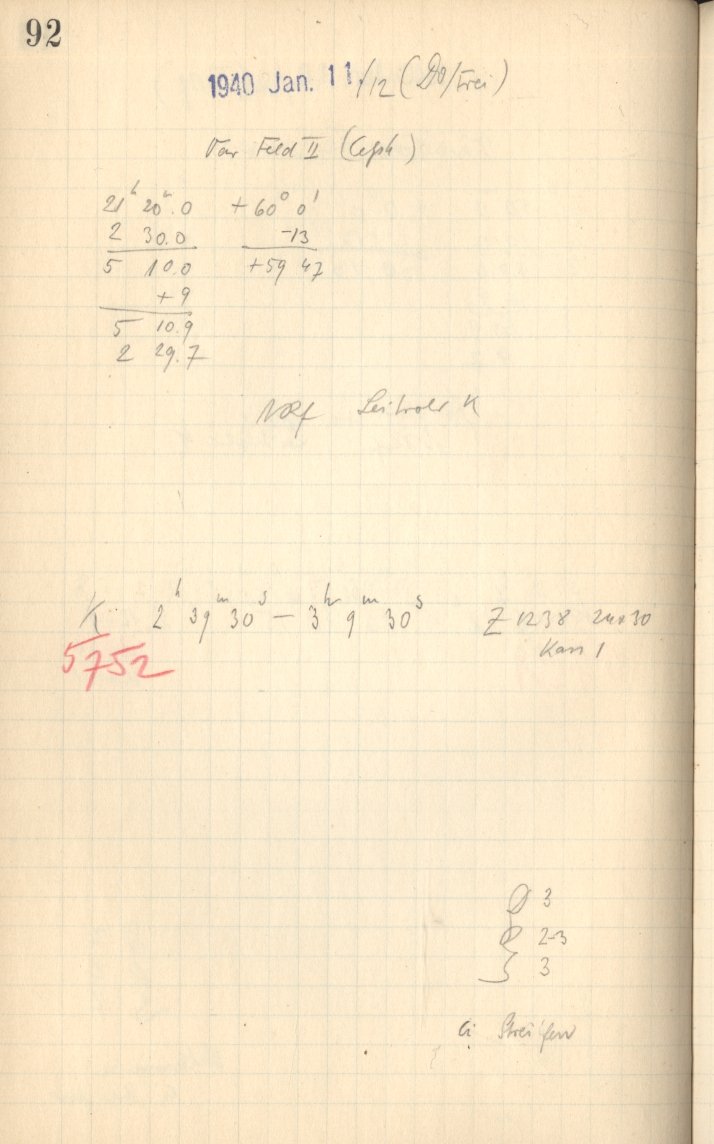 92
1940 Jan. 11./12 (Do/Frei)
Var Feld II (Ceph)
21ʰ 20ᵐ.0 +60° 0'
2 30.0 -13
5 10.0 +59 47
+9
5 10.9
2 29.7
Leitrohr K
K 2ʰ 39ᵐ 30ˢ — 3ʰ 9ᵐ 30ˢ Z 1238 24x30
5752 Kass 1
3
2-3
3
Ci Streifen